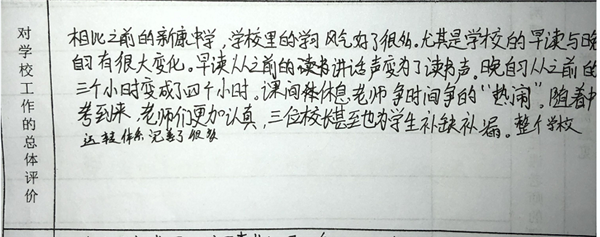 对学校工作的总体评价
相比之前的新康中学，学校里的学习风气好了很多。尤其是学校的早读与晚
自习有很大变化。早读从之前的讲话声变为了读书声。晚自习从之前的
三个小时变成了四个小时。课间休息老师争时间争的“热闹”。随着中
考到来，老师们更加认真，三位校长甚至也为学生补缺补漏。整个学校
运转体系完善了很多